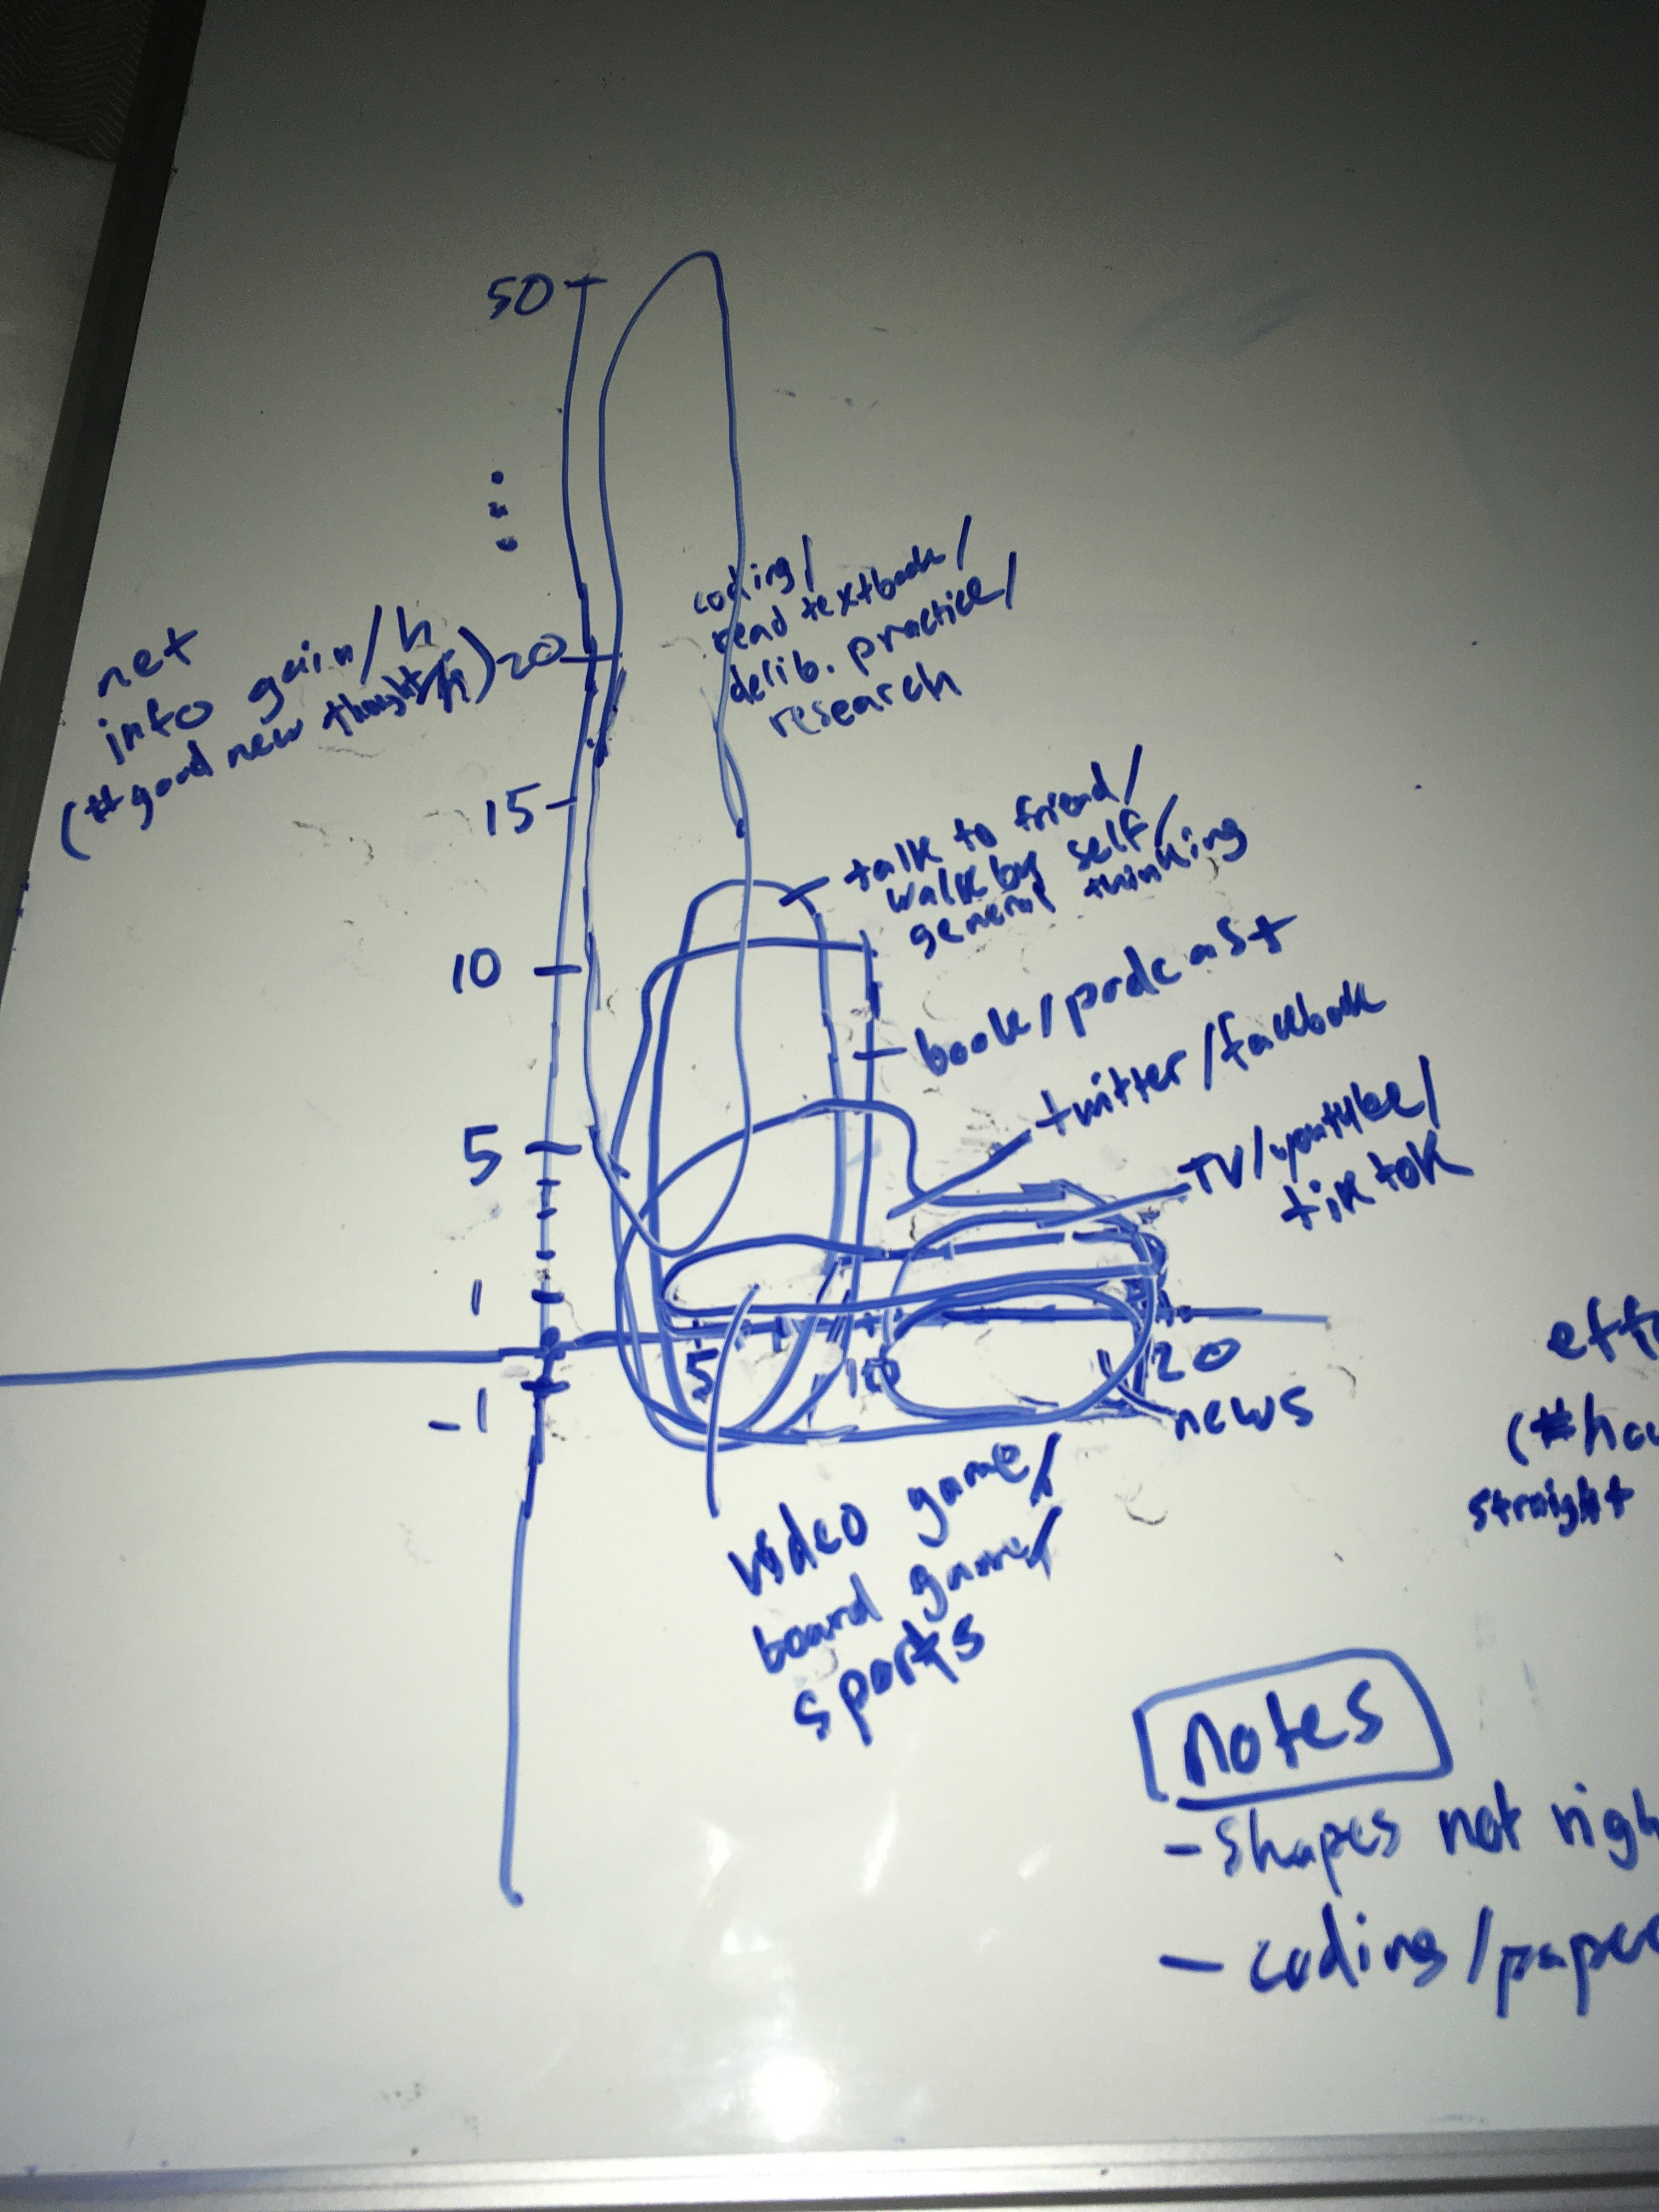 50
net
info gain/h
(# good new thoughts/h)
20
15
10
5
1
-1
coding/
read textbook/
delib. practice/
research
talk to friend/
walk by self/
general thinking
book/podcast
twitter/facebook
TV/youtube/
tiktok
5
10
20
news
video game/
board game/
sports
effo
(#hou
straight
notes
- shapes not righ
- coding/paper